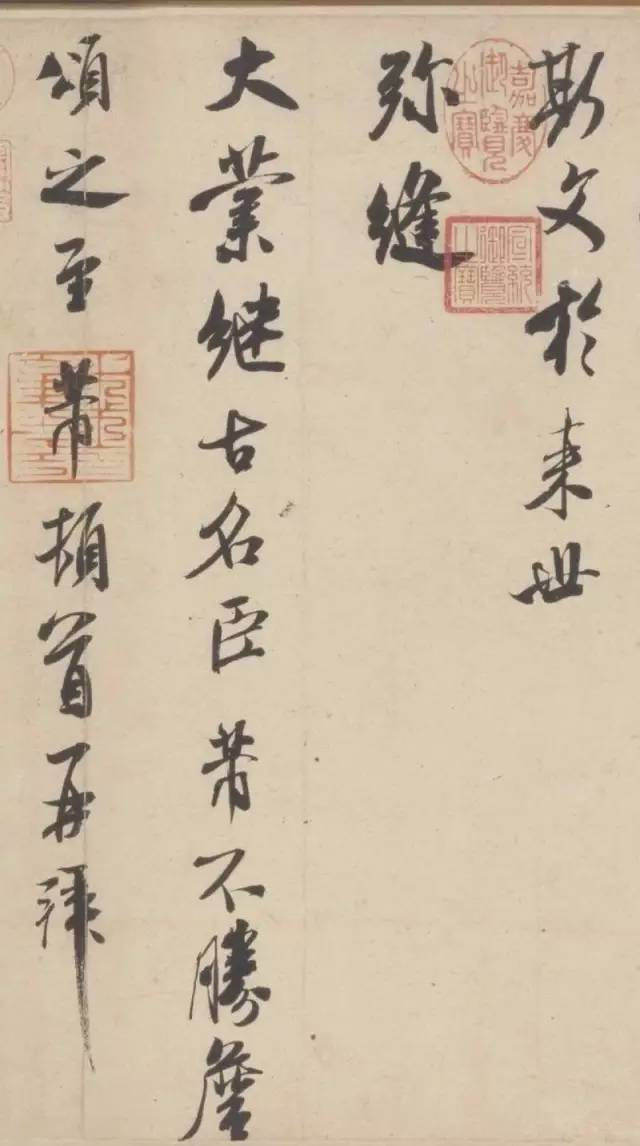 斯文於来世
弥縫
大業继古名臣芾不勝詹
頌之至芾頓首再拜
嘉慶御覽之寶
宣統御覽之寶